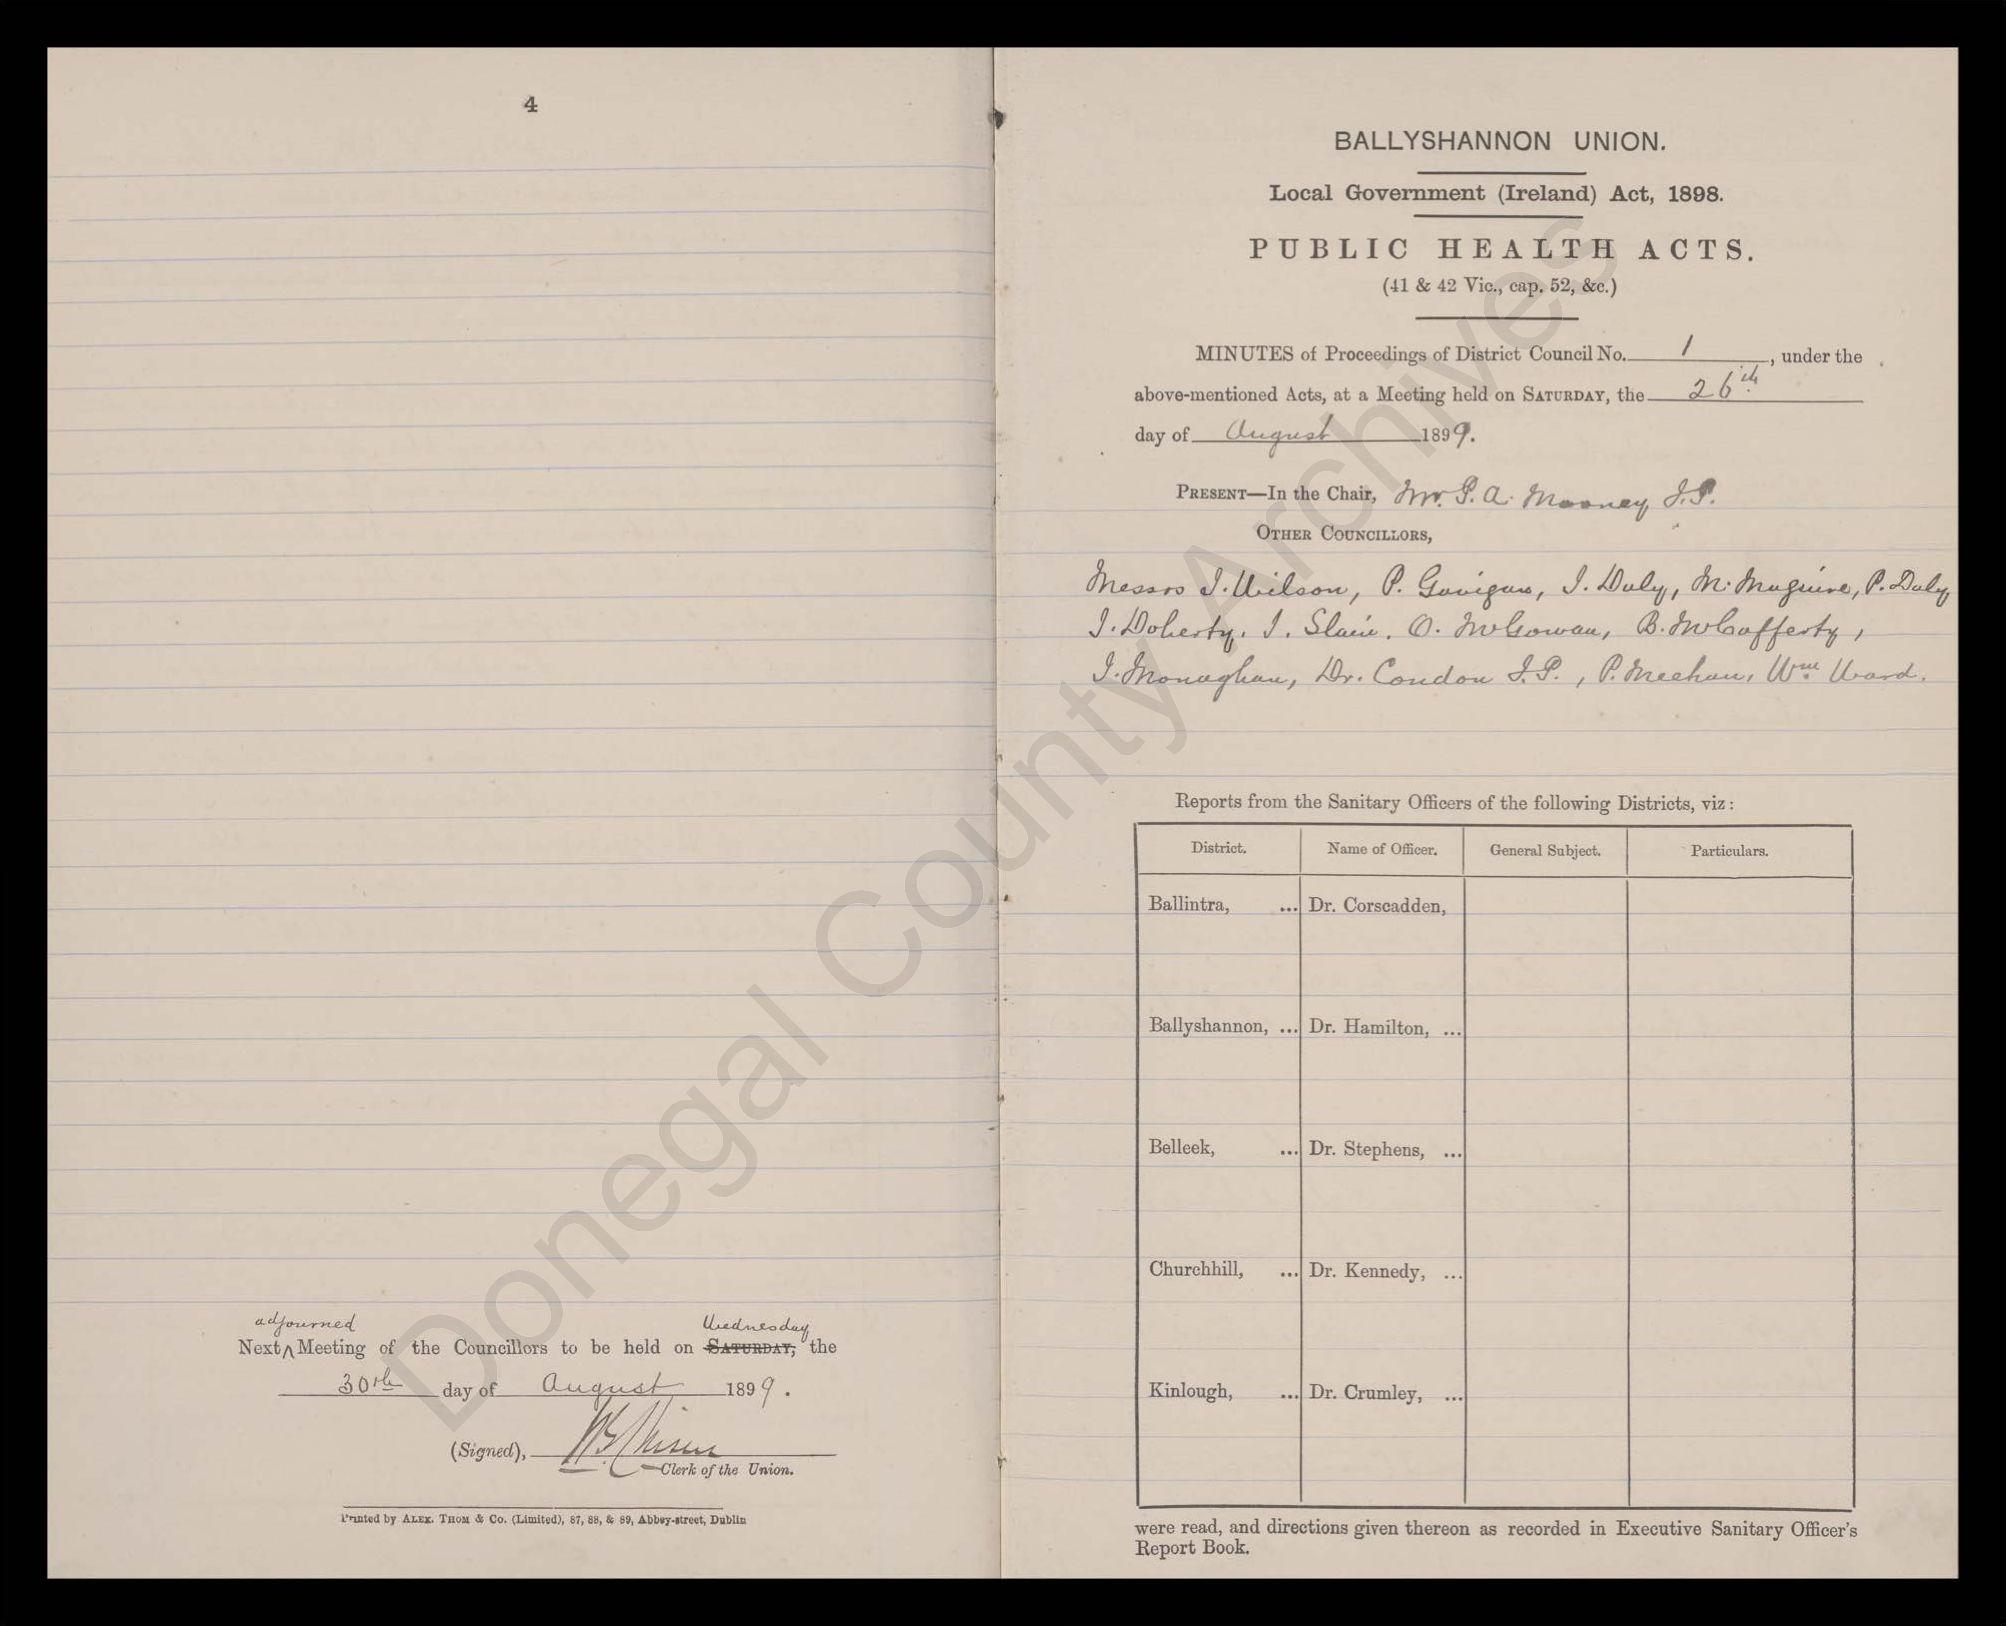 4
adjourned Wednesday
Next ^ Meeting of the Councillors to be held on SATURDAY, the
30th day of August 1899.
(Signed),
Clerk of the Union.
Printed by ALEX. THOM & Co. (Limited), 87, 88, & 89, Abbey-street, Dublin
BALLYSHANNON UNION.
Local Government (Ireland) Act, 1898.
PUBLIC HEALTH ACTS.
(41 & 42 Vic., cap. 52, &c.)
MINUTES of Proceedings of District Council No. 1, under the
above-mentioned Acts, at a Meeting held on SATURDAY, the 26th
day of August 1899.
PRESENT—In the Chair, Mr. P. A. Mooney J.P.
OTHER COUNCILLORS,
Messrs J. Wilson, P. Gavigan, J. Daly, M. Maguire, P. Daly
J. Doherty, J. Slain, O. McGowan, B. McCafferty,
J. Monaghan, Dr. Condon J.P., P. Meehan, Wm. Ward.
Reports from the Sanitary Officers of the following Districts, viz:
District. Name of Officer. General Subject. Particulars.
Ballintra, ... Dr. Corscadden,
Ballyshannon, ... Dr. Hamilton, ...
Belleek, ... Dr. Stephens, ...
Churchhill, ... Dr. Kennedy, ...
Kinlough, ... Dr. Crumley, ...
were read, and directions given thereon as recorded in Executive Sanitary Officer's
Report Book.
Donegal County Archives